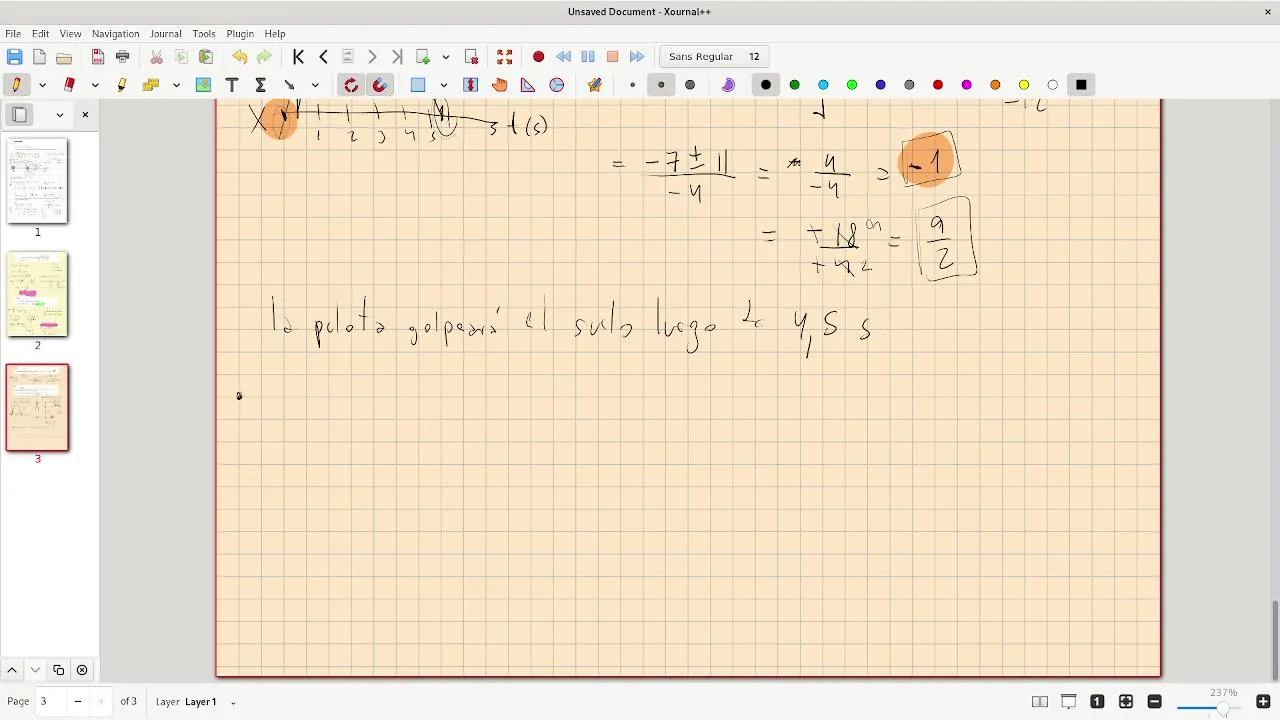 Unsaved Document - Xournal++
File Edit View Navigation Journal Tools Plugin Help
Sans Regular 12
1 2 3 4 5 5 t (s)
-12
= -7 ± 11 / -4 = 4 / -4 = -1
= + 18 9 / + 4 2 = 9 / 2
la pelota golpeará el suelo luego de 4,5 s
1
2
3
Page 3 of 3 Layer Layer1
237%